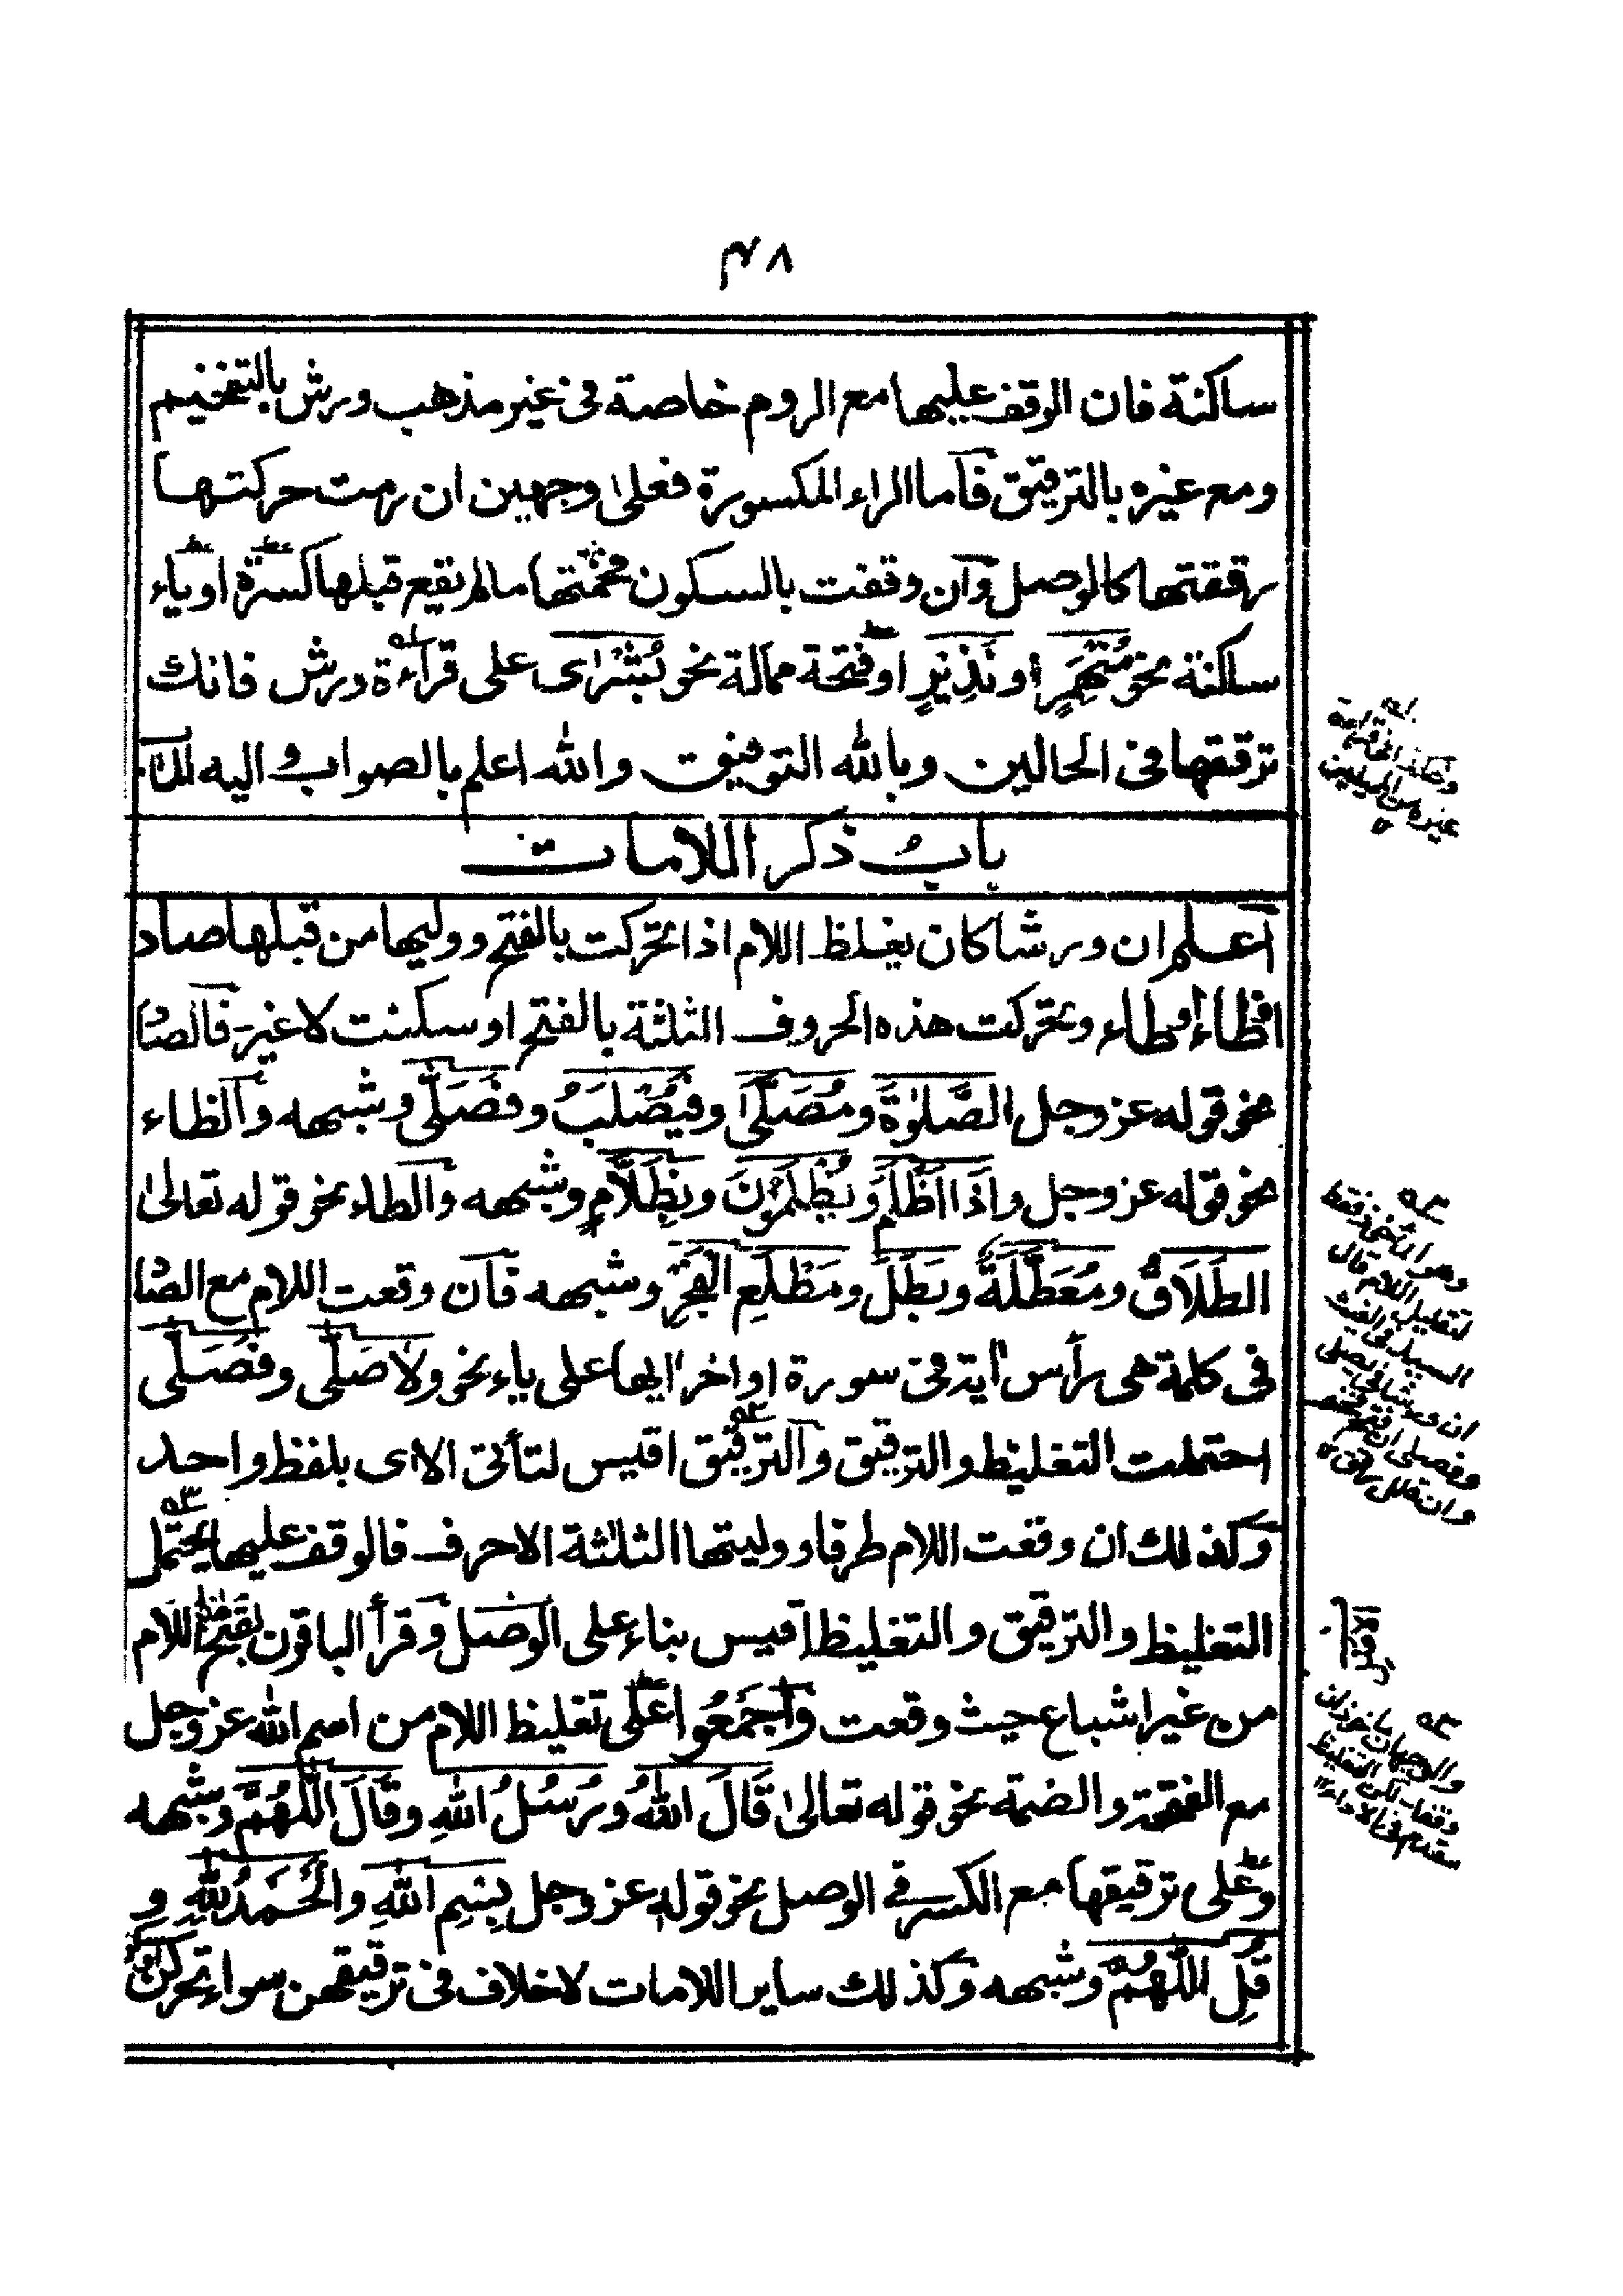 ٤٨
ساكنة فان الوقف عليها مع الروم خاصة في غير مذهب ورش بالتفخيم
ومع غيره بالترقيق فاما الراء المكسورة فعلى وجهين ان رمت حركتها
رققتها كالوصل وان وقفت بالسكون فخمتها مالم يقع قبلها كسرة او ياء
ساكنة نحو مُنْهَمِرٍ او نَذِيْرٍ او فتحة ممالة نحو بُشْرٰى على قراءة ورش فانك
ترققها في الحالين وبالله التوفيق والله اعلم بالصواب و اليه المآب
باب ذكر اللامات
اعلم ان ورشا كان يغلظ اللام اذا تحركت بالفتح ووليها من قبلها صاد
او ظاء او طاء وتحركت هذه الحروف الثلثة بالفتح او سكنت لا غير فالصاد
نحو قوله عز وجل الصَّلٰوةَ ومُصَلًّى وفيُصْلَبُ وفَصَلّٰى وشبهه والظاء
نحو قوله عز وجل واذَا اَظْلَمَ ويُظْلَمُوْنَ وبِظَلَّامٍ وشبهه والطاء نحو قوله تعالى
الطَلَاقُ ومُعَطَّلَةٍ وبَطَلَ ومَطْلَعِ الْفَجْرِ وشبهه فان وقعت اللام مع الصاد
في كلمة هي رأس اٰية في سورة اواخر اٰيها على ياء نحو ولا صَلّٰى وفَصَلّٰى
احتملت التغليظ والترقيق والترقيق اقيس لتأتي الاٰى بلفظ واحد
وكذلك ان وقعت اللام طرفا ووليتها الثلثة الاحرف فالوقف عليها يحتمل
التغليظ والترقيق والتغليظ اقيس بناء على الوصل وقرأ الباقون بفتح اللام
من غير اشباع حيث وقعت واجمَعُوا على تغليظ اللام من اسم الله عز وجل
مع الفتحة والضمة نحو قوله تعالى قَالَ اللهُ ورُسُلُ اللهِ وقَالَ اللّٰهُمَّ وشبهه
وعلى ترقيقها مع الكسر في الوصل نحو قوله عز وجل بِسْمِ اللهِ والْحَمْدُ لِلّٰهِ و
قُلِ اللّٰهُمَّ وشبهه وكذلك ساير اللامات لا خلاف في ترقيقهن سواء تحركن او
غيره من المميلين
وهو اتخذ فقه
لتقليل اللام قال
السيد في الغيث
ان ورشا في يصلى
والوجهان ماخوذان
وقفا لكن التغليظ
مقدم في الاداء